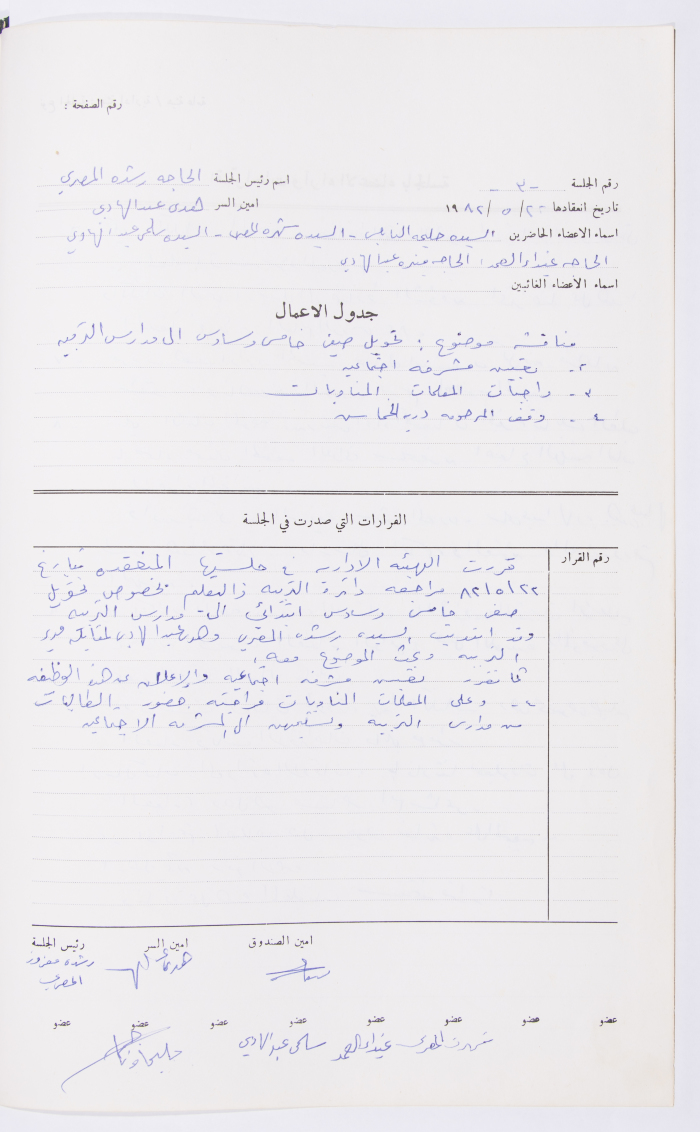 رقم الصفحة :
رقم الجلسة - ٣ - اسم رئيس الجلسة الحاجه رشده المصري
تاريخ انعقادها ٢٢ / ٥ / ١٩٨٢ امين السر هدى عبد الهادي
اسماء الاعضاء الحاضرين السيده حليمه النابلسي - السيده شهره المصري - السيده سلمى عبد الهادي
الحاجه عبد الهادي
اسماء الأعضاء الغائبين
جدول الاعمال
مناقشة موضوع : تحويل صف خامس وسادس الى مدارس التربيه
٢ - تعيين مشرفه اجتماعيه
٣ - واجبات المعلمات المناوبات
٤ - وقف المرحومه دريه
القرارات التي صدرت في الجلسة
رقم القرار
قررت الهيئه الاداريه في جلستها المنعقده بتاريخ
٨٢/٥/٢٢ مراجعه دائرة التربيه والتعليم بخصوص تحويل
صف خامس وسادس ابتدائي الى مدارس التربيه
وقد انتدبت السيده رشده المصري وهدى عبد الهادي لمقابلة مدير
التربيه وبحث الموضوع معه
كما تقرر تعيين مشرفه اجتماعيه والإعلان عن هذه الوظيفه
٤ - وعلى المعلمات المناوبات مراقبة حضور الطالبات
من مدارس التربيه وتسليمهن الى المشرفه الاجتماعيه
امين الصندوق امين السر رئيس الجلسة
رشده
المصري
عضو عضو عضو عضو عضو عضو عضو عضو
المصري سلمى عبد الهادي